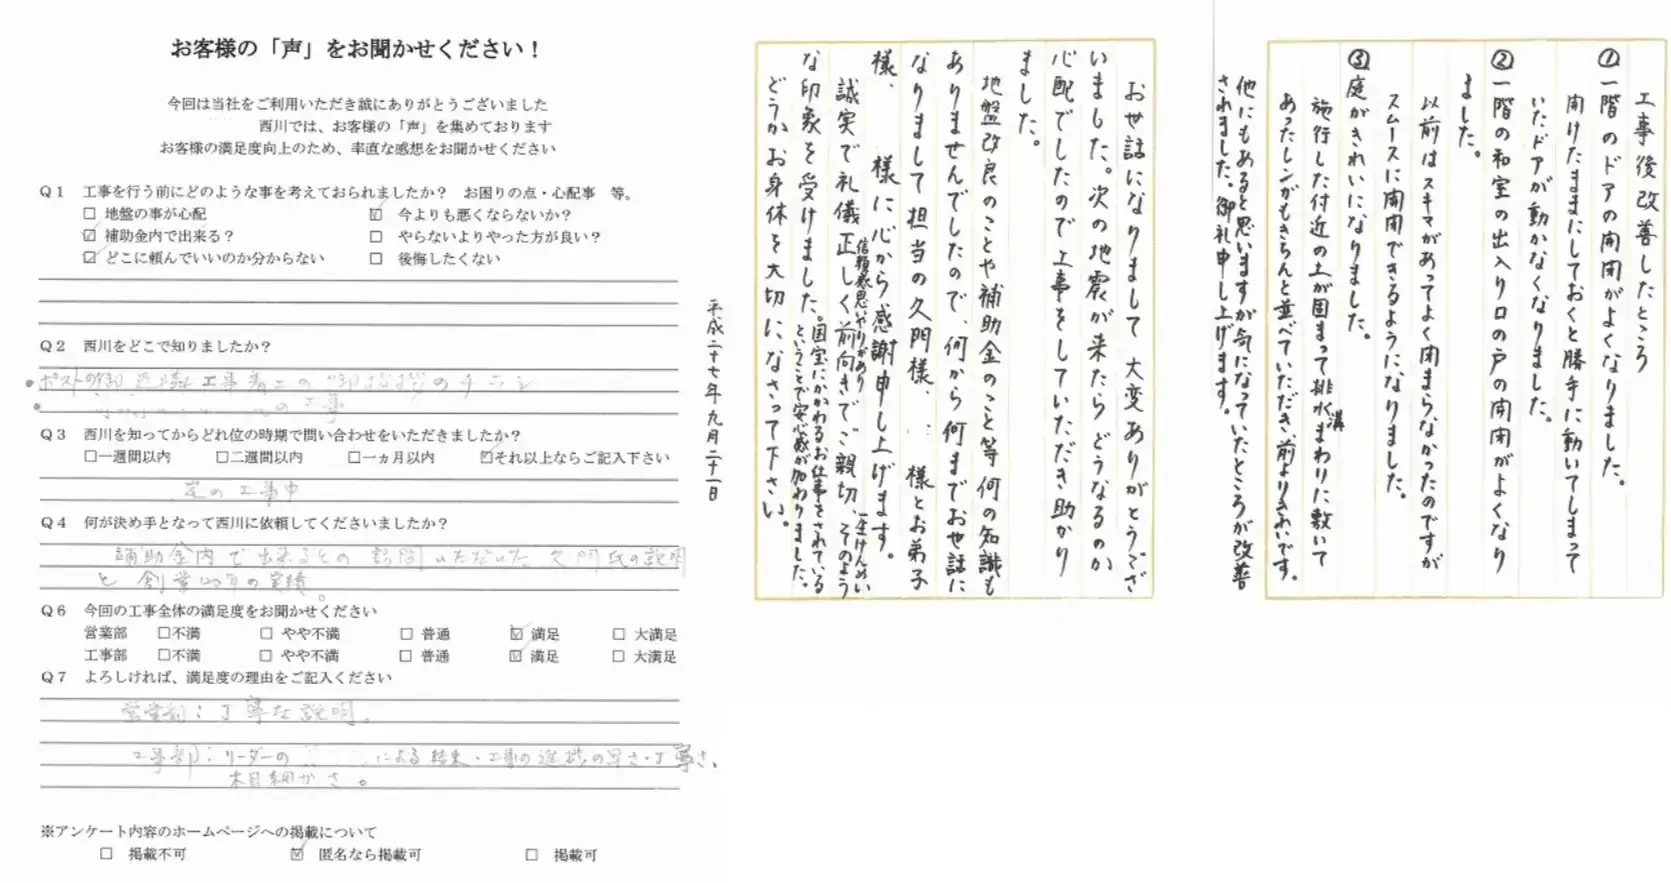 お客様の「声」をお聞かせください！
今回は当社をご利用いただき誠にありがとうございました
西川では、お客様の「声」を集めております
お客様の満足度向上のため、率直な感想をお聞かせください
Q1 工事を行う前にどのような事を考えておられましたか？ お困りの点・心配事 等。
□ 地盤の事が心配 ☑ 今よりも悪くならないか？
☑ 補助金内で出来る？ □ やらないよりやった方が良い？
☑ どこに頼んでいいのか分からない □ 後悔したくない
Q2 西川をどこで知りましたか？
・ポストの御近隣工事着工の御挨拶のチラシ
・の工事
Q3 西川を知ってからどれ位の時期で問い合わせをいただきましたか？
□一週間以内 □二週間以内 □一ヵ月以内 ☑それ以上ならご記入下さい
の工事中
Q4 何が決め手となって西川に依頼してくださいましたか？
補助金内で出来るとの訪問いただいた久門氏の説明
と創業100年の実績。
Q6 今回の工事全体の満足度をお聞かせください
営業部 □不満 □ やや不満 □ 普通 ☑ 満足 □ 大満足
工事部 □不満 □ やや不満 □ 普通 ☑ 満足 □ 大満足
Q7 よろしければ、満足度の理由をご記入ください
営業部：丁寧な説明。
工事部：リーダーの による結束・工事の進捗の早さ・丁寧さ、
木目細かさ。
※アンケート内容のホームページへの掲載について
□ 掲載不可 ☑ 匿名なら掲載可 □ 掲載可
お世話になりまして大変ありがとうござ
いました。次の地震が来たらどうなるのか
心配でしたので工事をしていただき助かり
ました。
地盤改良のことや補助金のこと等何の知識も
ありませんでしたので、何から何までお世話に
なりまして担当の久門様、様とお弟子
様、様に心から感謝申し上げます。
誠実で礼儀正しく信頼感思いやりがあり前向きでご親切、一生けんめいそのよう
な印象を受けました。国宝にかかわるお仕事をされている
ということで安心感が加わりました。
どうかお身体を大切になさって下さい。
平成二十七年九月二十一日
工事後改善したところ
①一階のドアの開閉がよくなりました。
開けたままにしておくと勝手に動いてしまって
いたドアが動かなくなりました。
②一階の和室の出入り口の戸の開閉がよくなり
ました。
以前はスキマがあってよく閉まらなかったのですが
スムースに開閉できるようになりました。
③庭がきれいになりました。
施行した付近の土が固まって排水溝まわりに敷いて
あったレンガもきちんと並べていただき、前よりきれいです。
他にもあると思いますが気になっていたところが改善
されました。御礼申し上げます。